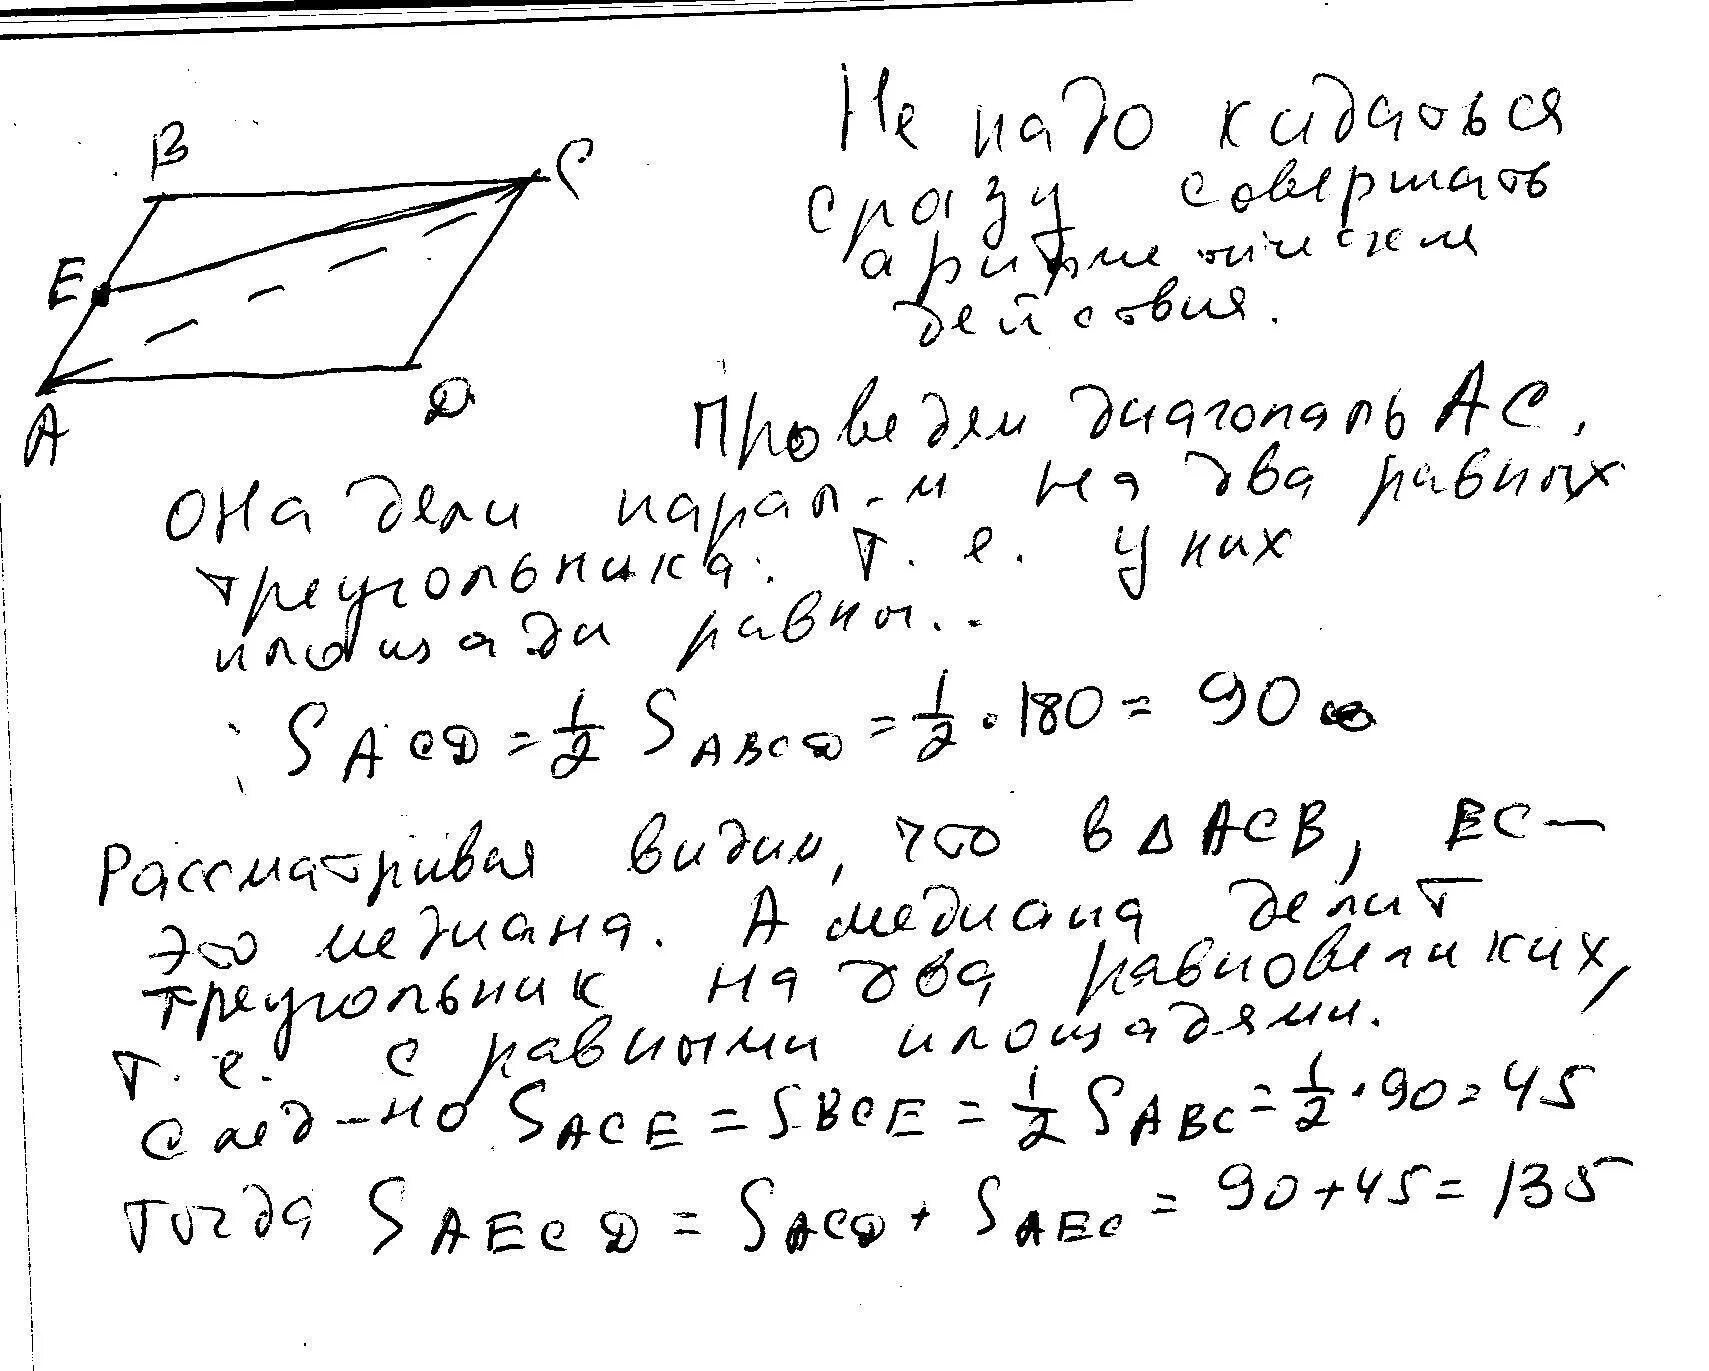 B
C
E
A
D
Не надо кидаться
сразу совершать
арифметические
действия.
Проведем диагональ AC,
она дели парал-м на два равных
треугольника. Т. е. у них
площади равны..
S ACD = 1/2 S ABCD = 1/2 · 180 = 90
Рассматривая видим, что в Δ ACB, EC –
это медиана. А медиана делит
треугольник на два равновеликих,
т. е. с равными площадями.
След-но S ACE = S BCE = 1/2 S ABC = 1/2 · 90 = 45
тогда S AECD = S ACD + S AEC = 90 + 45 = 135